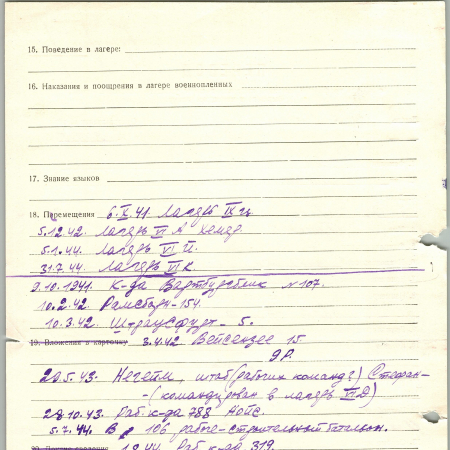 15. Поведение в лагере:
16. Наказания и поощрения в лагере военнопленных
17. Знание языков
18. Перемещения 6.X.41. Лагерь IX ц.
5.12.42. Лагерь VI А хемер.
5.1.44. Лагерь VI Й.
31.7.44. Лагерь VI К
9.10.1941. К-да Вартбургблик №107.
10.2.42. Рамсборн-154.
10.3.42. Штраусфурт - 5.
19. Вложения в карточку 3.4.42 Вейсензее 15
20.5.43. Негейм, штаб(рабочих команд?) Стефан-
-(командирован в лагерь VI Д)
28.10.43. Раб. к-да 788 Нойс.
5.7.44. В 106 рабоче-строительный батальон.
44 Раб к-да 319.